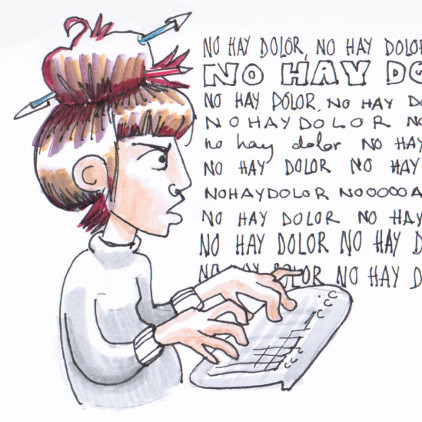 NO HAY DOLOR, NO HAY DOLOR
NO HAY DO
NO HAY DOLOR, NO HAY D
NO HAY DOLOR NO
no hay dolor NO HAY
NO HAY DOLOR NO HAY
NOHAYDOLOR NOOOOOA
NO HAY DOLOR NO HAY
NO HAY DOLOR NO HAY D
NO HAY DOLOR NO HAY D